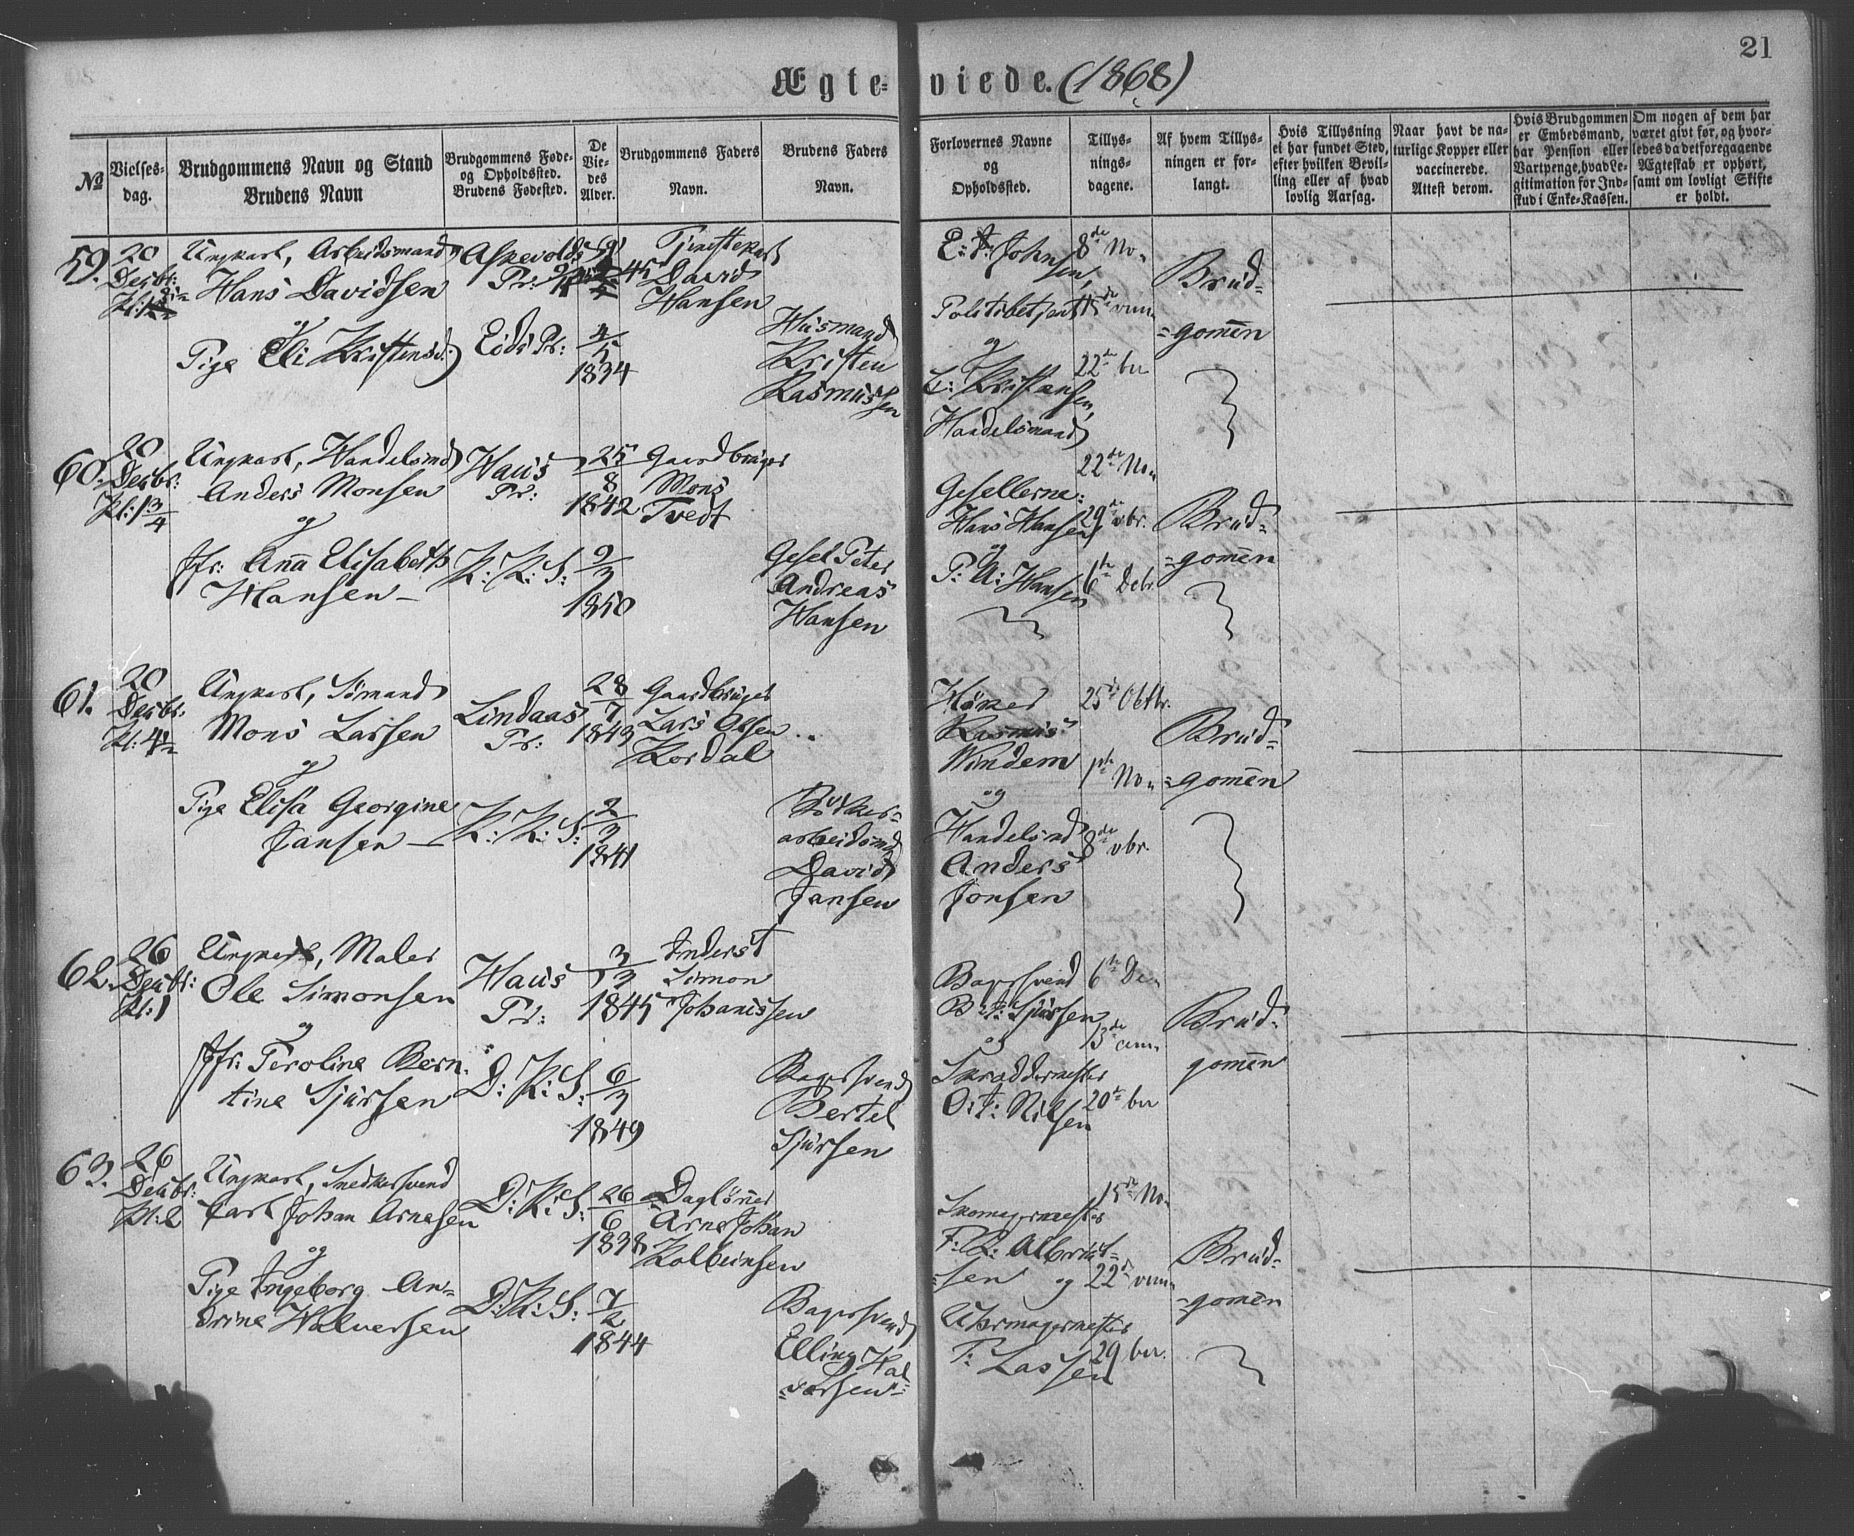 21
Ægte-viede. (1868)
No
Vielses-
dag.
Brudgommens Navn og Stand
Brudens Navn
Brudgommens Føde-
og Opholdssted.
Brudens Fødested.
De
Vie-
des
Alder.
Brudgommens Faders
Navn.
Brudens Faders
Navn.
Forlovernes Navne
og
Opholdssted.
Tillys-
nings-
dagene.
Af hvem Tillys-
ningen er for-
langt.
Hvis Tillysning
ei har fundet Sted,
efter hvilken Bevil-
ling eller af hvad
lovlig Aarsag.
Naar havt de na-
turlige Kopper eller
vaccinerede.
Attest derom.
Hvis Brudgommen
er Embedsmand,
har Pension eller
Vartpenge, hvad Le-
gitimation for Ind-
skud i Enke-Kassen.
Om nogen af dem har
været givt før, og hvor-
ledes da det foregaaende
Ægteskab er ophørt,
samt om lovligt Skifte
er holdt.
59.
20
Desbr:
Ungkarl, Arbeidsmand
Hans Davidsen
og
Pige Eli Kristensd:
Askevolds
Pr:
Eids Pr:
45
4/5
1834
Tjenestekarl
David
Hansen
Husmand
Kristen
Rasmussen
E: T: Johnsen,
Politibetjent
og
L: Kristansen,
Handelsmand
8de No-
15de vem-
22de ber
Brud-
=gomēn
60.
20
Desbr:
Kl: 1 3/4
Ungkarl, Handelsmd
Anders Monsen
og
Jfr: Aña Elisabeth
Hansen —
Haus
Pr:
K: K: S:
25/8
1842
9/3
1850
Gaardbruger
Mons
Tvedt
Gesel Peter
Andreas
Hansen
Gesellerne:
Hans Hansen
og
P: A: Hansen
22de No-
29de vbr.
6te Debr
Brud-
=gomēn
61.
20
Desbr:
Kl: 4½
Ungkarl, Sömand
Mons Larsen
og
Pige Elisa Georgine
Jansen —
Lindaas
Pr:
K: K: S:
28/7
1843
2/3
1841
Gaardbruger
Lars Olsen
Kordal
Bödker-
arbeidsmd
David
Jansen
Höker
Rasmus
Windem
og
Handelsmd
Anders
Jonsen
25de Oktbr.
1ste No-
8de vbr.
Brud-
=gomēn
62.
26
Desbr:
Kl: 1
Ungkarl, Maler
Ole Simonsen
og
Jfr: Peroline Bern-
tine Sjursen
Haus
Pr:
D: K: S:
3/3
1845
6/3
1849
Inderst
Simon
Johanissen
Bagersvend
Bertel
Sjursen
Bagersvend
B: T: Sjursen
og
Skræddermester
O: T: Nilsen
6te De-
13de cem-
20de ber
Brud-
gomēn
63.
26
Desbr:
Kl: 2
Ungkarl, Snedkersvend
Carl Johan Arnesen
og
Pige Ingeborg An-
drine Halversen
D: K: S:
D: K: S:
26/6
1838
7/2
1844
Daglöñer
Arne Johan
Kolbeinsen
Bagersvend
Elling Hal-
=vorsen-
Skomagermester
F: R: Albrigt-
=sen og
Uhrmagermester
P: Lassen
15de No-
22de vem-
29 ber.
Brud-
=gomēn